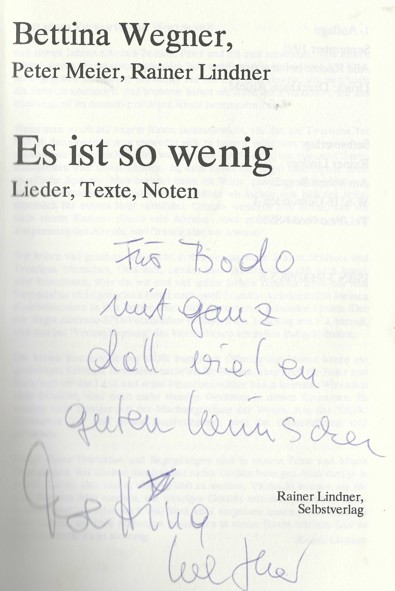 Bettina Wegner,
Peter Meier, Rainer Lindner
Es ist so wenig
Lieder, Texte, Noten
Für Bodo
mit ganz
doll vielen
guten Wünschen
Rainer Lindner,
Selbstverlag
Bettina
Wegner